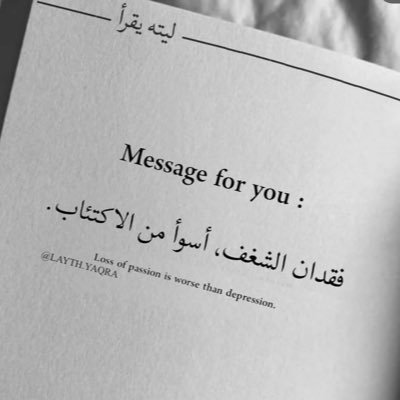 ليته يقرأ
Message for you :
فقدان الشغف، أسوأ من الاكتئاب.
Loss of passion is worse than depression.
@LAYTH.YAQRA